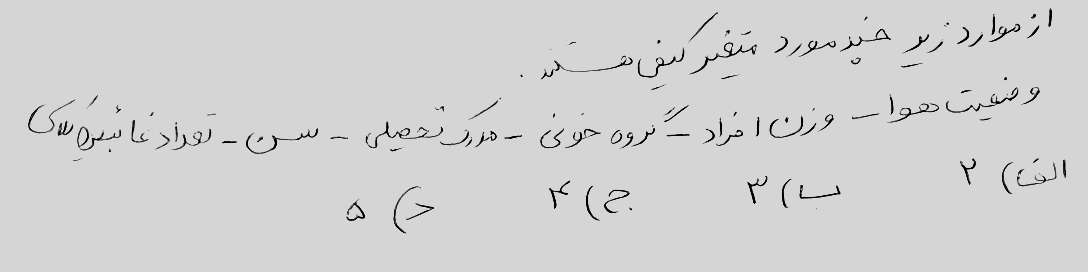 از موارد زیر چند مورد متغیر کیفی هستند.
وضعیت هوا - وزن افراد - گروه خونی - مدرک تحصیلی - سن - تعداد غائبین کلاس
الف) ۲ ب) ۳ ج) ۴ د) ۵